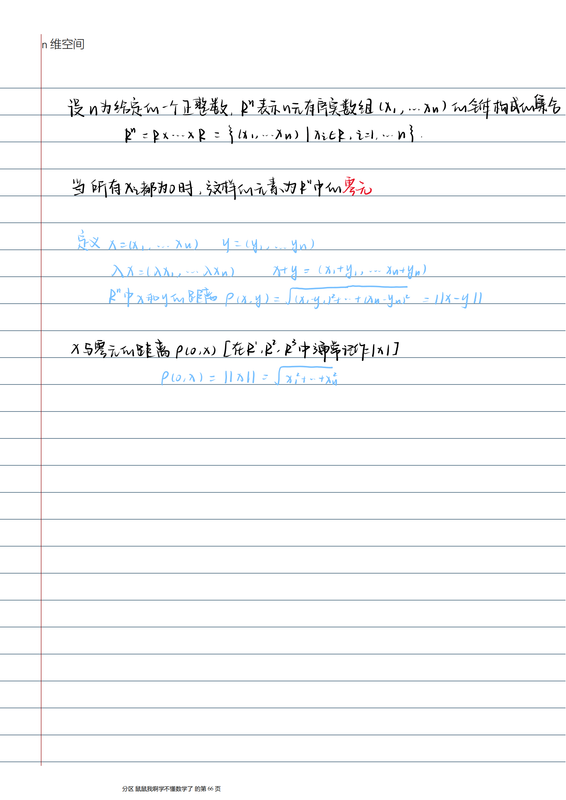 n 维空间
设n为给定的一个正整数, Rⁿ表示n元有序实数组(x₁, …xₙ)的全体构成的集合
Rⁿ = R×…×R = {(x₁, …xₙ) | xᵢ∈R, i=1, … n}.
当所有xᵢ都为0时, 这样的元素为Rⁿ中的零元
定义 x=(x₁, … xₙ) y=(y₁, … yₙ)
λx=(λx₁, … λxₙ) x+y = (x₁+y₁, … xₙ+yₙ)
Rⁿ中x和y的距离 ρ(x,y) = √(x₁-y₁)²+…+(xₙ-yₙ)² = ||x-y||
x与零元的距离 ρ(0,x) [在R¹, R², R³中通常记作|x|]
ρ(0,x) = ||x|| = √x₁²+…+xₙ²
分区 鼠鼠我啊学不懂数学了 的第 66 页